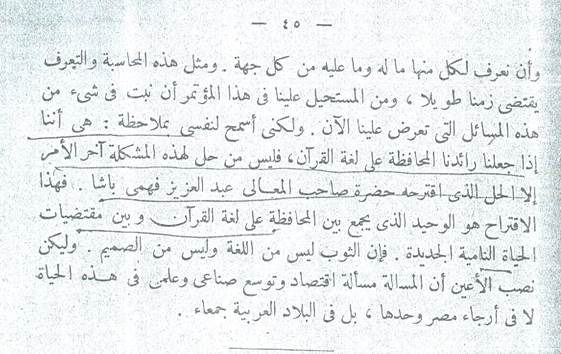 — ٤٥ —
وأن نعرف لكل منها ما له وما عليه من كل جهة . ومثل هذه المحاسبة والتعرف
يقتضى زمنا طويلا ، ومن المستحيل علينا فى هذا المؤتمر أن نبت فى شىء من
هذه المسائل التى تعرض علينا الآن . ولكنى أسمح لنفسى بملاحظة : هى أننا
إذا جعلنا رائدنا المحافظة على لغة القرآن، فليس من حل لهذه المشكلة آخر الأمر
إلا الحل الذى اقترحه حضرة صاحب المعالى عبد العزيز فهمى باشا . فهذا
الاقتراح هو الوحيد الذى يجمع بين المحافظة على لغة القرآن وبين مقتضيات
الحياة النامية الجديدة . فإن الثوب ليس من اللغة وليس من الصميم . وليكن
نصب الأعين أن المسالة مسألة اقتصاد وتوسع صناعى وعلمى فى هذه الحياة
لا فى أرجاء مصر وحدها ، بل فى البلاد العربية جمعاء .